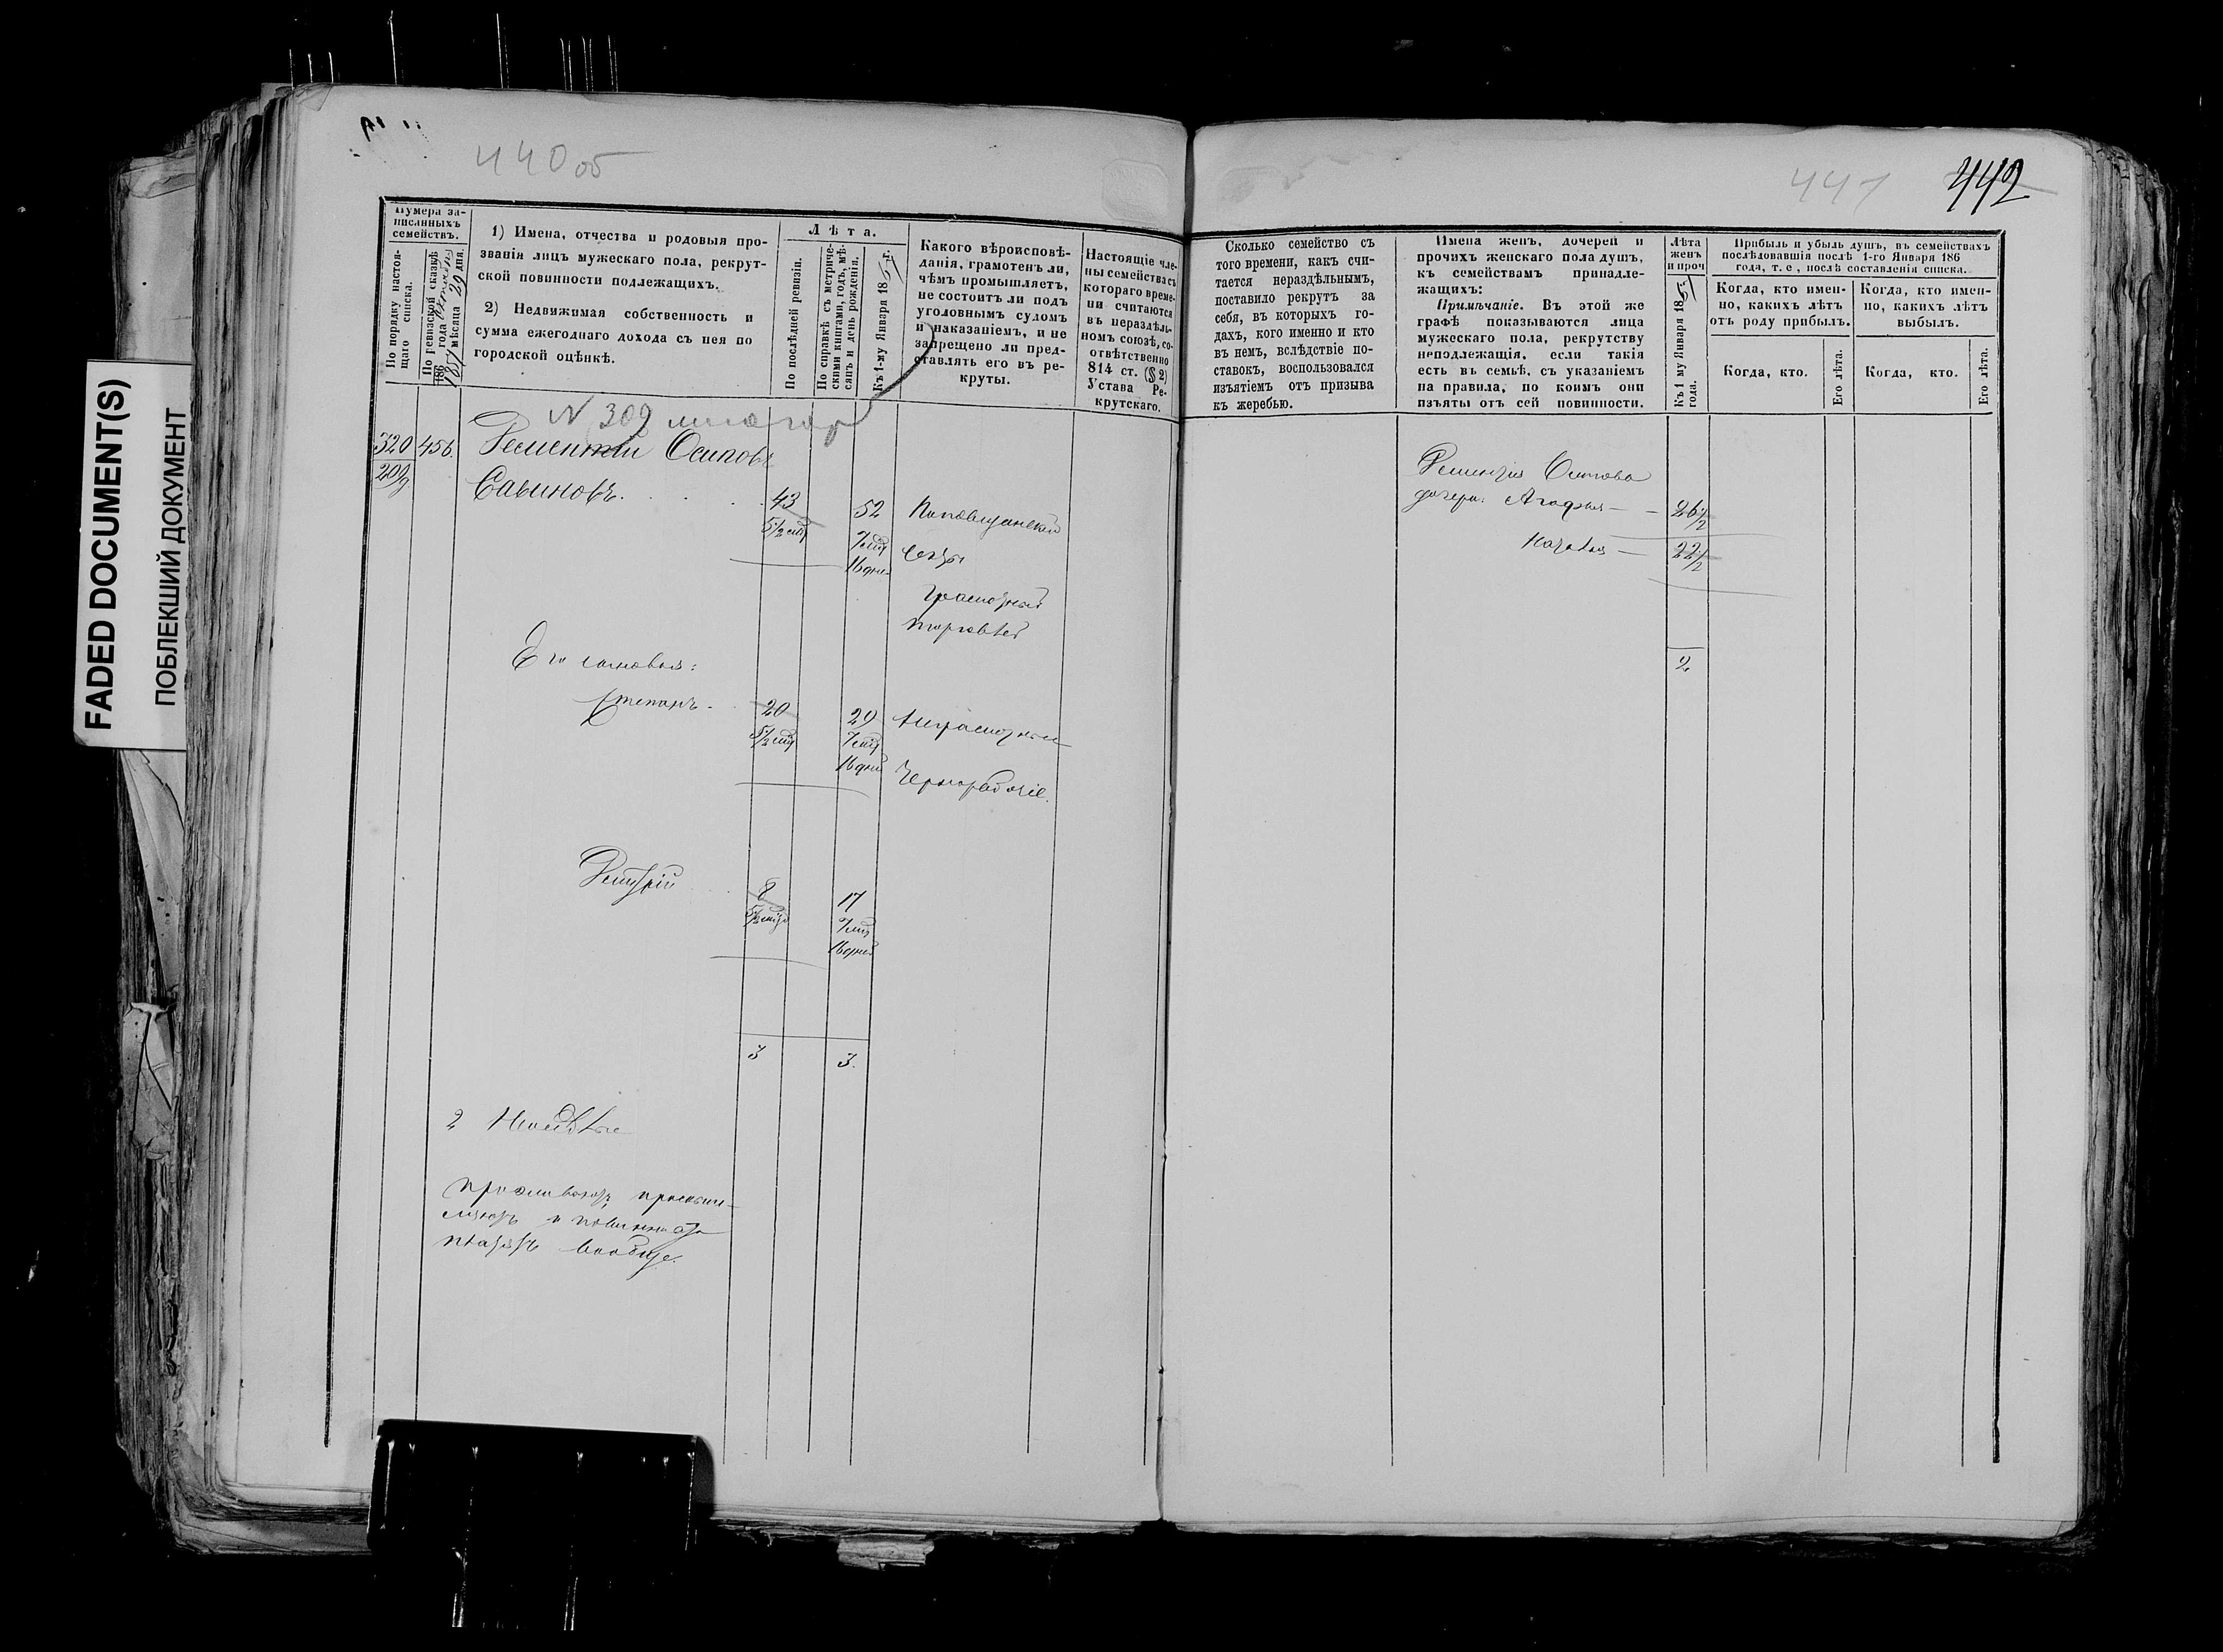 FADED DOCUMENT(S)
ПОБЛЕКШИЙ ДОКУМЕНТ
440об
Нумера за-
писанныхъ
семействъ.
По порядку настоя-
щаго списка.
По ревизской сказкѣ
186 года
1851 мѣсяца 29 дня.
1) Имена, отчества и родовыя про-
званія лицъ мужескаго пола, рекрут-
ской повинности подлежащихъ.
2) Недвижимая собственность и
сумма ежегоднаго дохода съ нея по
городской оцѣнкѣ.
Лѣта.
По послѣдней ревизіи.
По справкѣ съ метриче-
скими книгами, годъ, мѣ-
сяцъ и день рожденія.
Къ 1-му Января 18 г.
Какого вѣроисповѣ-
данія, грамотенъ ли,
чѣмъ промышляетъ,
не состоитъ ли подъ
уголовнымъ судомъ
и наказаніемъ, и не
запрещено ли пред-
ставлять его въ ре-
круты.
Настоящіе чле-
ны семейства съ
котораго време-
ни считаются
въ нераздѣль-
номъ союзѣ, со-
отвѣтственно
814 ст. (§ 2)
Устава Ре-
крутскаго.
N 309
320 456. Осиповъ
209 Савиновъ. 43 52
5 1/2 мц 7 мц
16 дне
сек
грамотный
торговлей
Его сыновья:
Степанъ. 20 29 неграмотные
5 1/2 мц 7 мц
16 дне Чернорабочіе.
8 17
5 1/2 7 мц
16 дней
3 3.
2 Неимѣютъ
вообще.
441 442
Сколько семейство съ
того времени, какъ счи-
тается нераздѣльнымъ,
поставило рекрутъ за
себя, въ которыхъ го-
дахъ, кого именно и кто
въ немъ, вслѣдствіе по-
ставокъ, воспользовался
изъятіемъ отъ призыва
къ жеребью.
Имена женъ, дочерей и
прочихъ женскаго пола душъ,
къ семействамъ принадле-
жащихъ:
Примѣчаніе. Въ этой же
графѣ показываются лица
мужескаго пола, рекрутству
неподлежащія, если такія
есть въ семьѣ, съ указаніемъ
на правила, по коимъ они
изъяты отъ сей повинности.
Лѣта
женъ
и проч
Къ 1 му Января 18
года.
Прибыль и убыль душъ, въ семействахъ
послѣдовавшія послѣ 1-го Января 186
года, т. е, послѣ составленія списка.
Когда, кто имен-
но, какихъ лѣтъ
отъ роду прибылъ.
Когда, кто имен-
но, какихъ лѣтъ
выбылъ.
Когда, кто.
Его лѣта.
Когда, кто.
Его лѣта.
Осипова
дочери: Агафья 26 1/2
Наталья 22 1/2
2